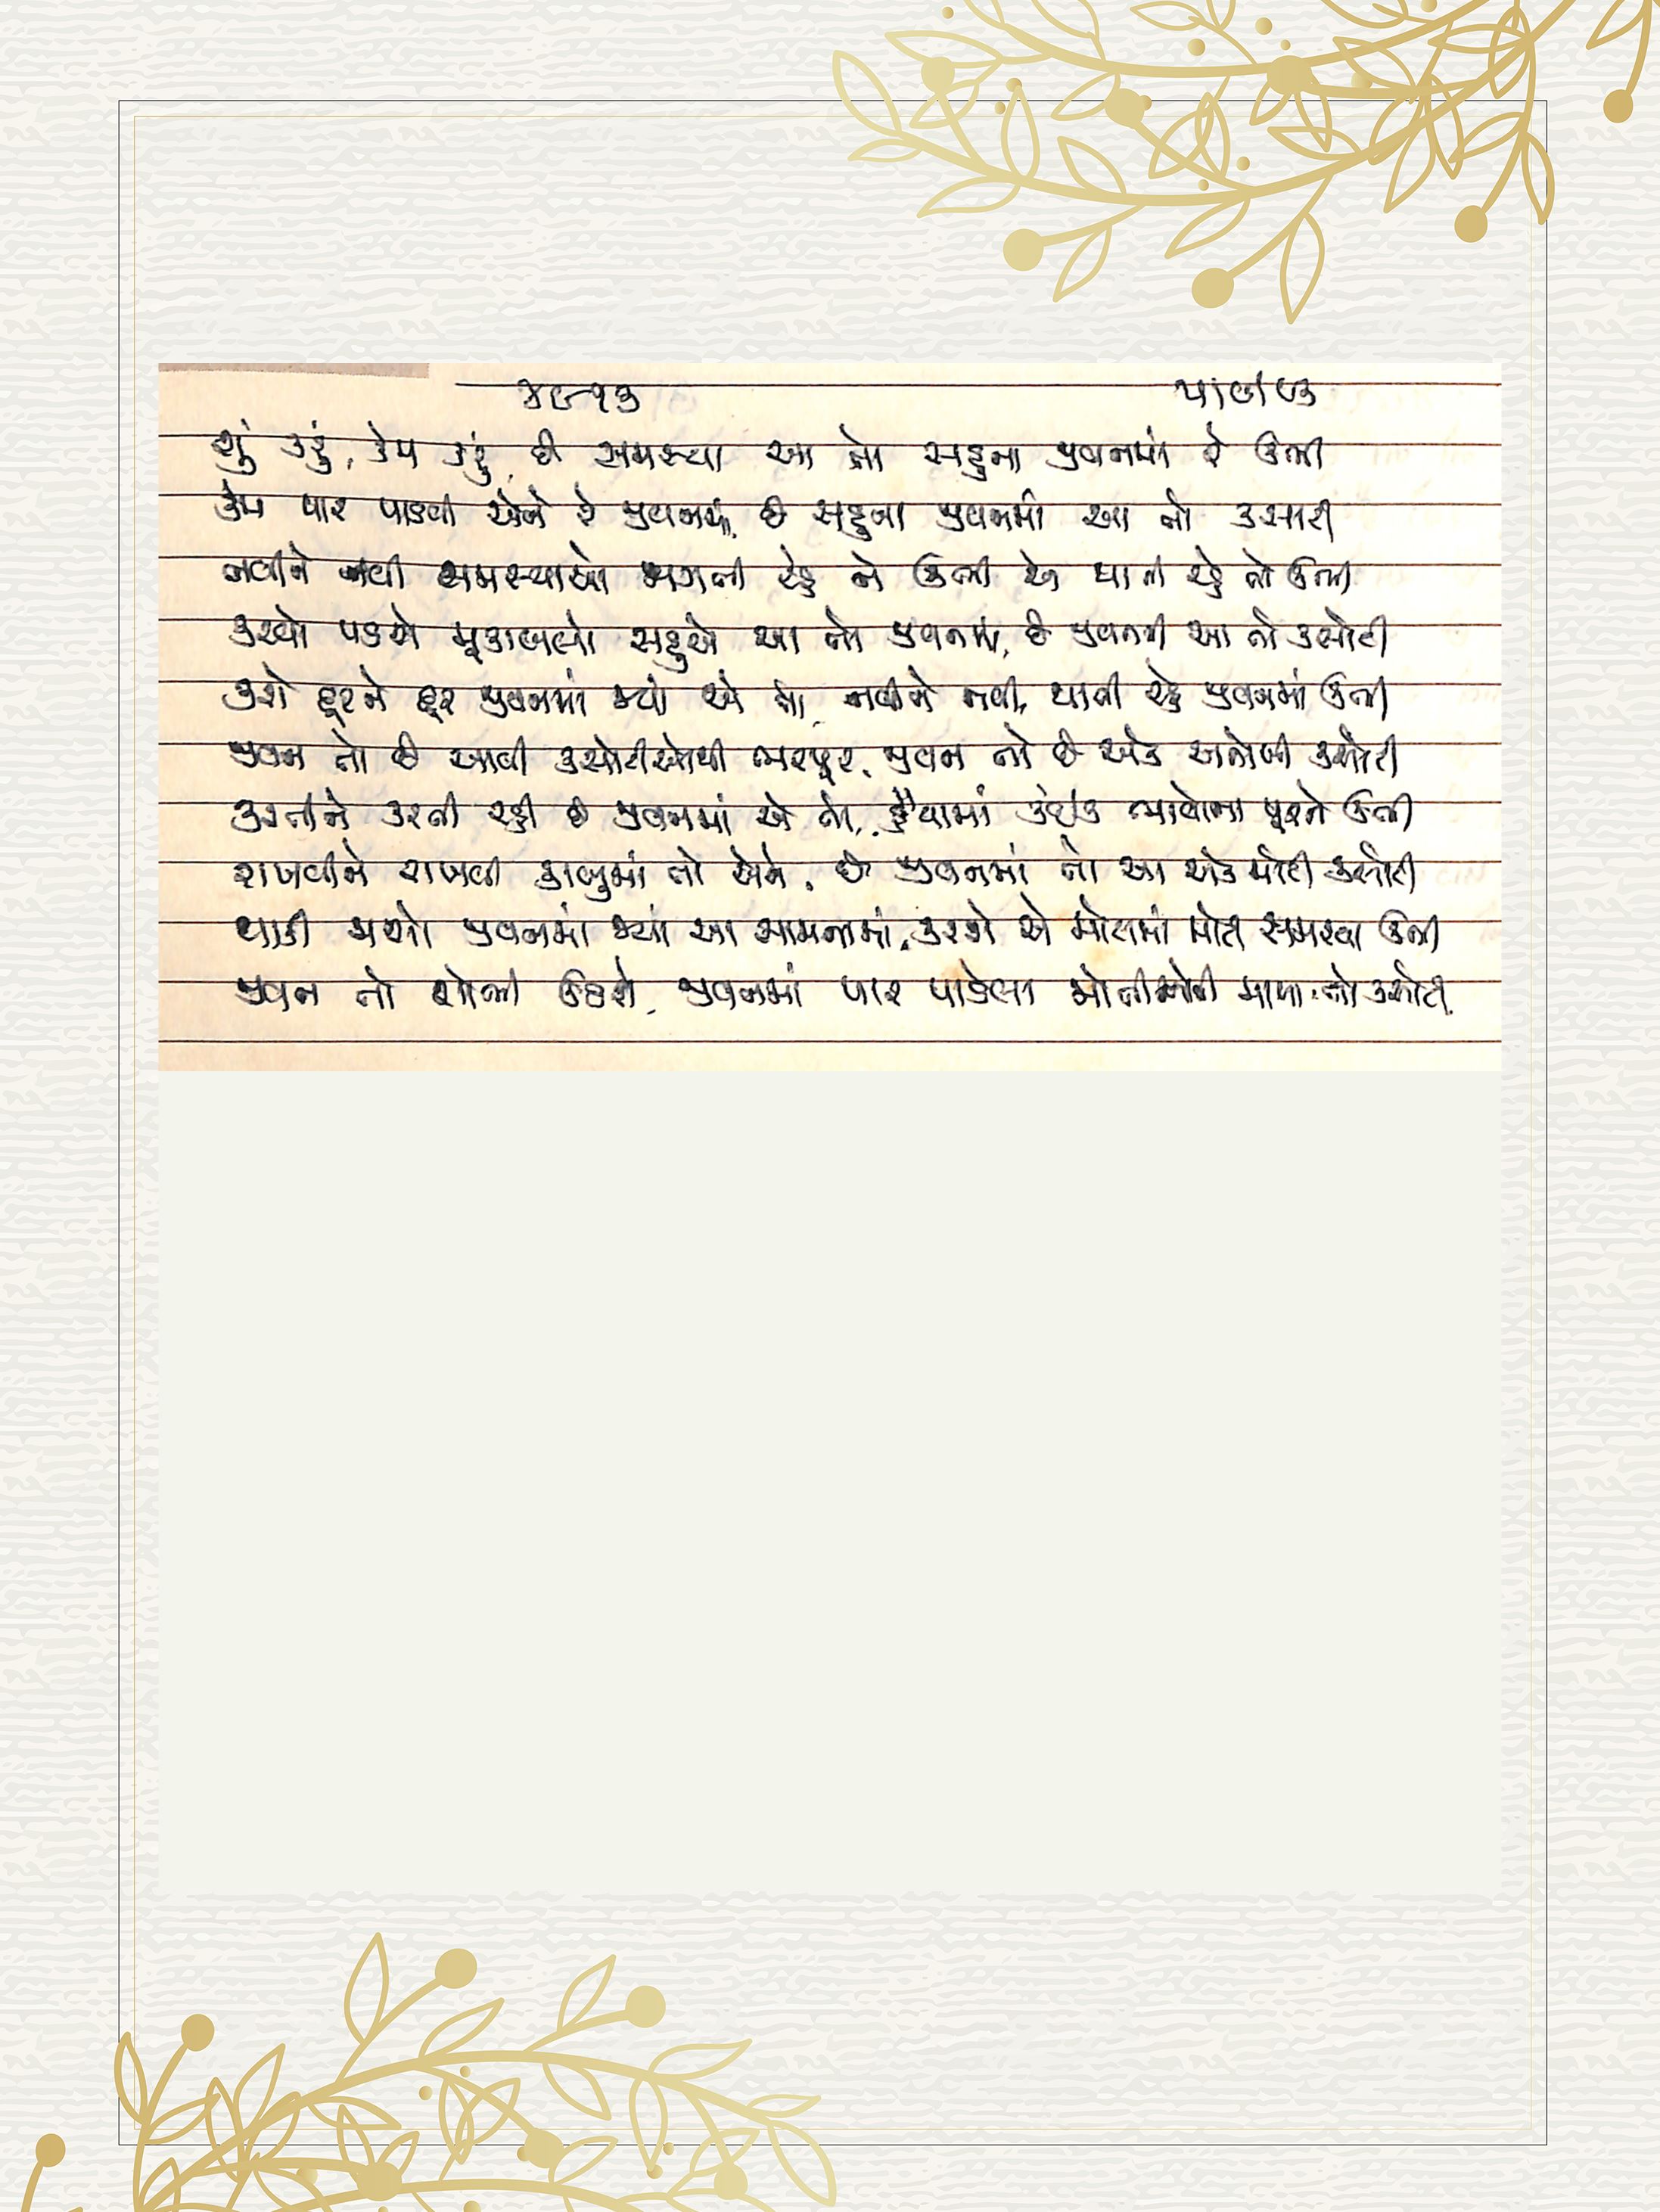 ૪૯૧૩
શું કરું, કેમ કરું, છે સમસ્યા આ તો સહુના જીવનમાં રે ઊભી
કેમ પાર પાડવી એને રે જીવનમાં, છે સહુના જીવનમાં આ તો કસોટી
નવીને નવી સમસ્યાઓ જાગતી રહે ને ઊભી એ થાતી રહે તો ઊભી
કરવો પડશે મૂકાબલો સહુએ આ તો જીવનમાં, છે જીવનની આ તો કસોટી
કરો દૂરને દૂર જીવનમાં જ્યાં એ તો, નવીને નવી, થાતી રહે જીવનમાં ઊભી
જીવન તો છે આવી કસોટીઓથી ભરપૂર, જીવન તો છે એક અનોખી કસોટી
કરતીને કરતી રહી છે જીવનમાં એ તો, હૈયામાં કંઈક ભાવોના પૂરને ઊભી
રાખવીને રાખવી કાબુમાં તો એને, છે જીવનમાં તો આ એક મોટી કસોટી
થાકી ગયો જીવનમાં જ્યાં આ સામનામાં, કરશે એ મોટામાં મોટી સમસ્યા ઊભી
જીવન તો શોભી ઊઠશે, જીવનમાં પાર પાડેલા મોતીઓની માળા તો કસોટી